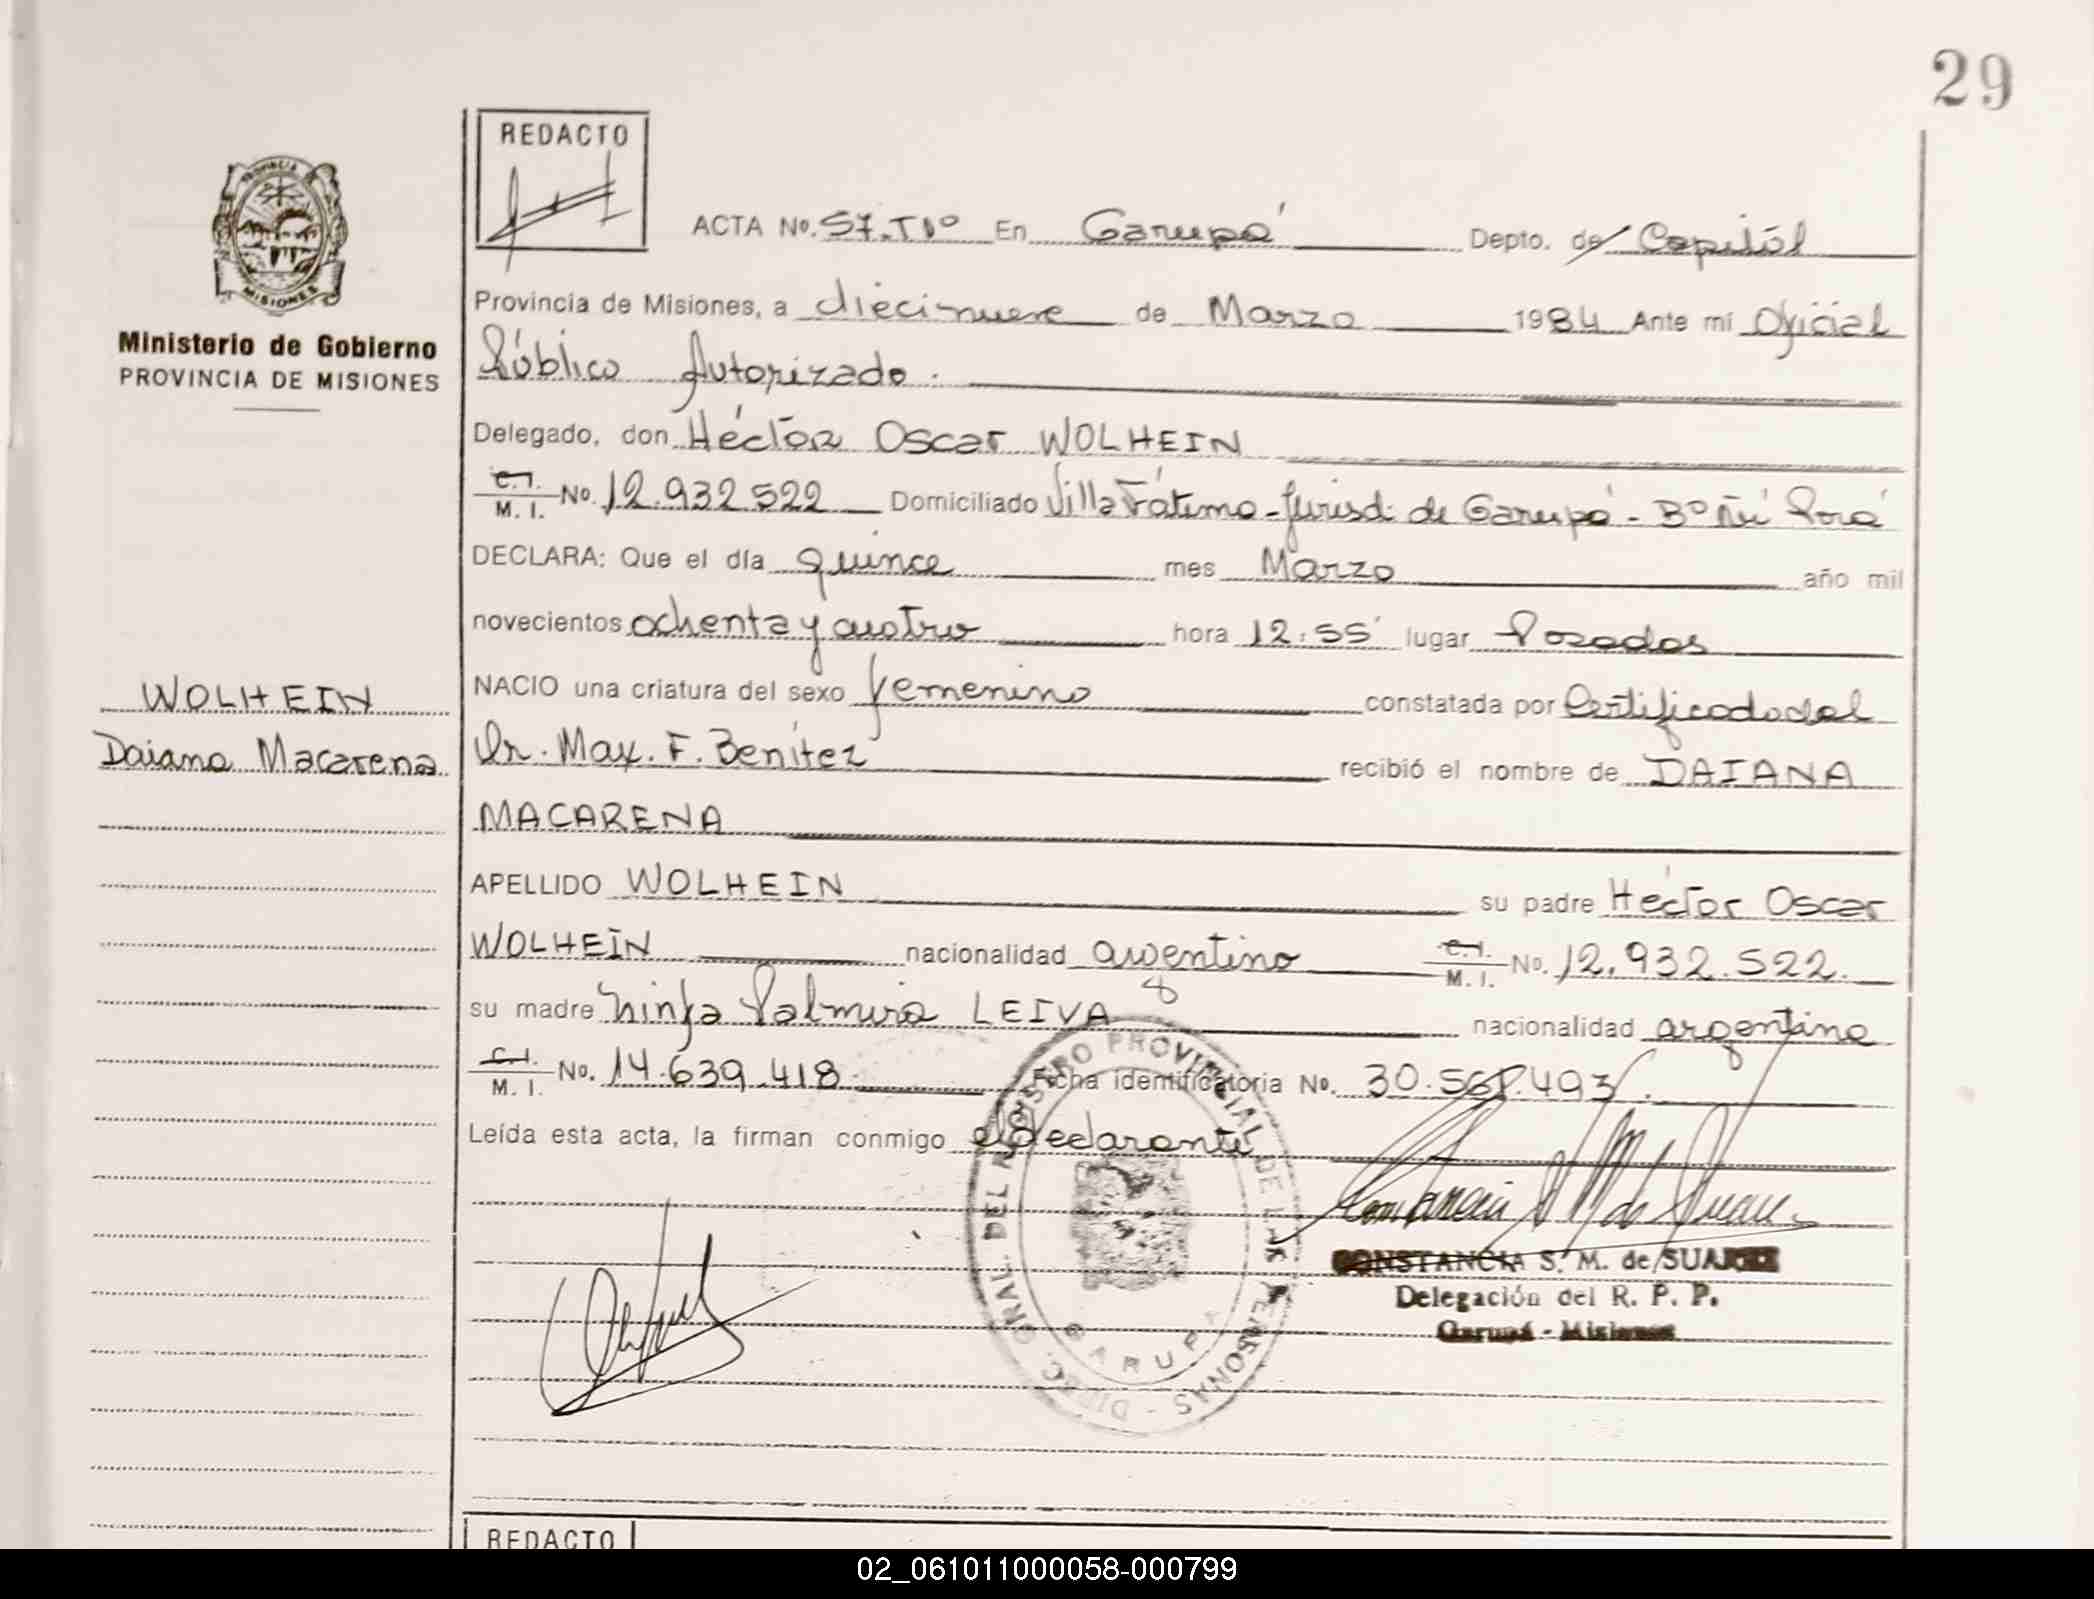 29
REDACTO
ACTA No. 57.Tº1º En Garupá Depto. de Capitál
Provincia de Misiones, a diecinueve de Marzo 1984 Ante mi Oficial
Público Autorizado.
Delegado, don Héctor Oscar WOLHEIN
C.I. / M. I. No. 12.932.522 Domiciliado Villa Fátima-Jurisd. de Garupá - Bº Ñú Porá
DECLARA: Que el día quince mes Marzo año mil
novecientos ochenta y cuatro hora 12:55' lugar Posadas
NACIO una criatura del sexo femenino constatada por Certificado del
Dr. Max. F. Benítez recibió el nombre de DAIANA
MACARENA
APELLIDO WOLHEIN su padre Héctor Oscar
WOLHEIN nacionalidad argentino C.I. / M. I. No. 12.932.522.
su madre Ninfa Palmira LEIVA nacionalidad argentina
C.I. / M. I. No. 14.639.418 Ficha identificatoria No. 30.568.493.
Leída esta acta, la firman conmigo el declarante
PROVINCIA DE MISIONES
Ministerio de Gobierno
PROVINCIA DE MISIONES
WOLHEIN
Daiana Macarena
DIREC. GRAL. DEL REGISTRO PROVINCIAL DE LAS PERSONAS -
GARUPA
CONSTANCIA S. M. de SUAREZ
Delegación del R. P. P.
Garupá - Misiones
REDACTO
02_061011000058-000799